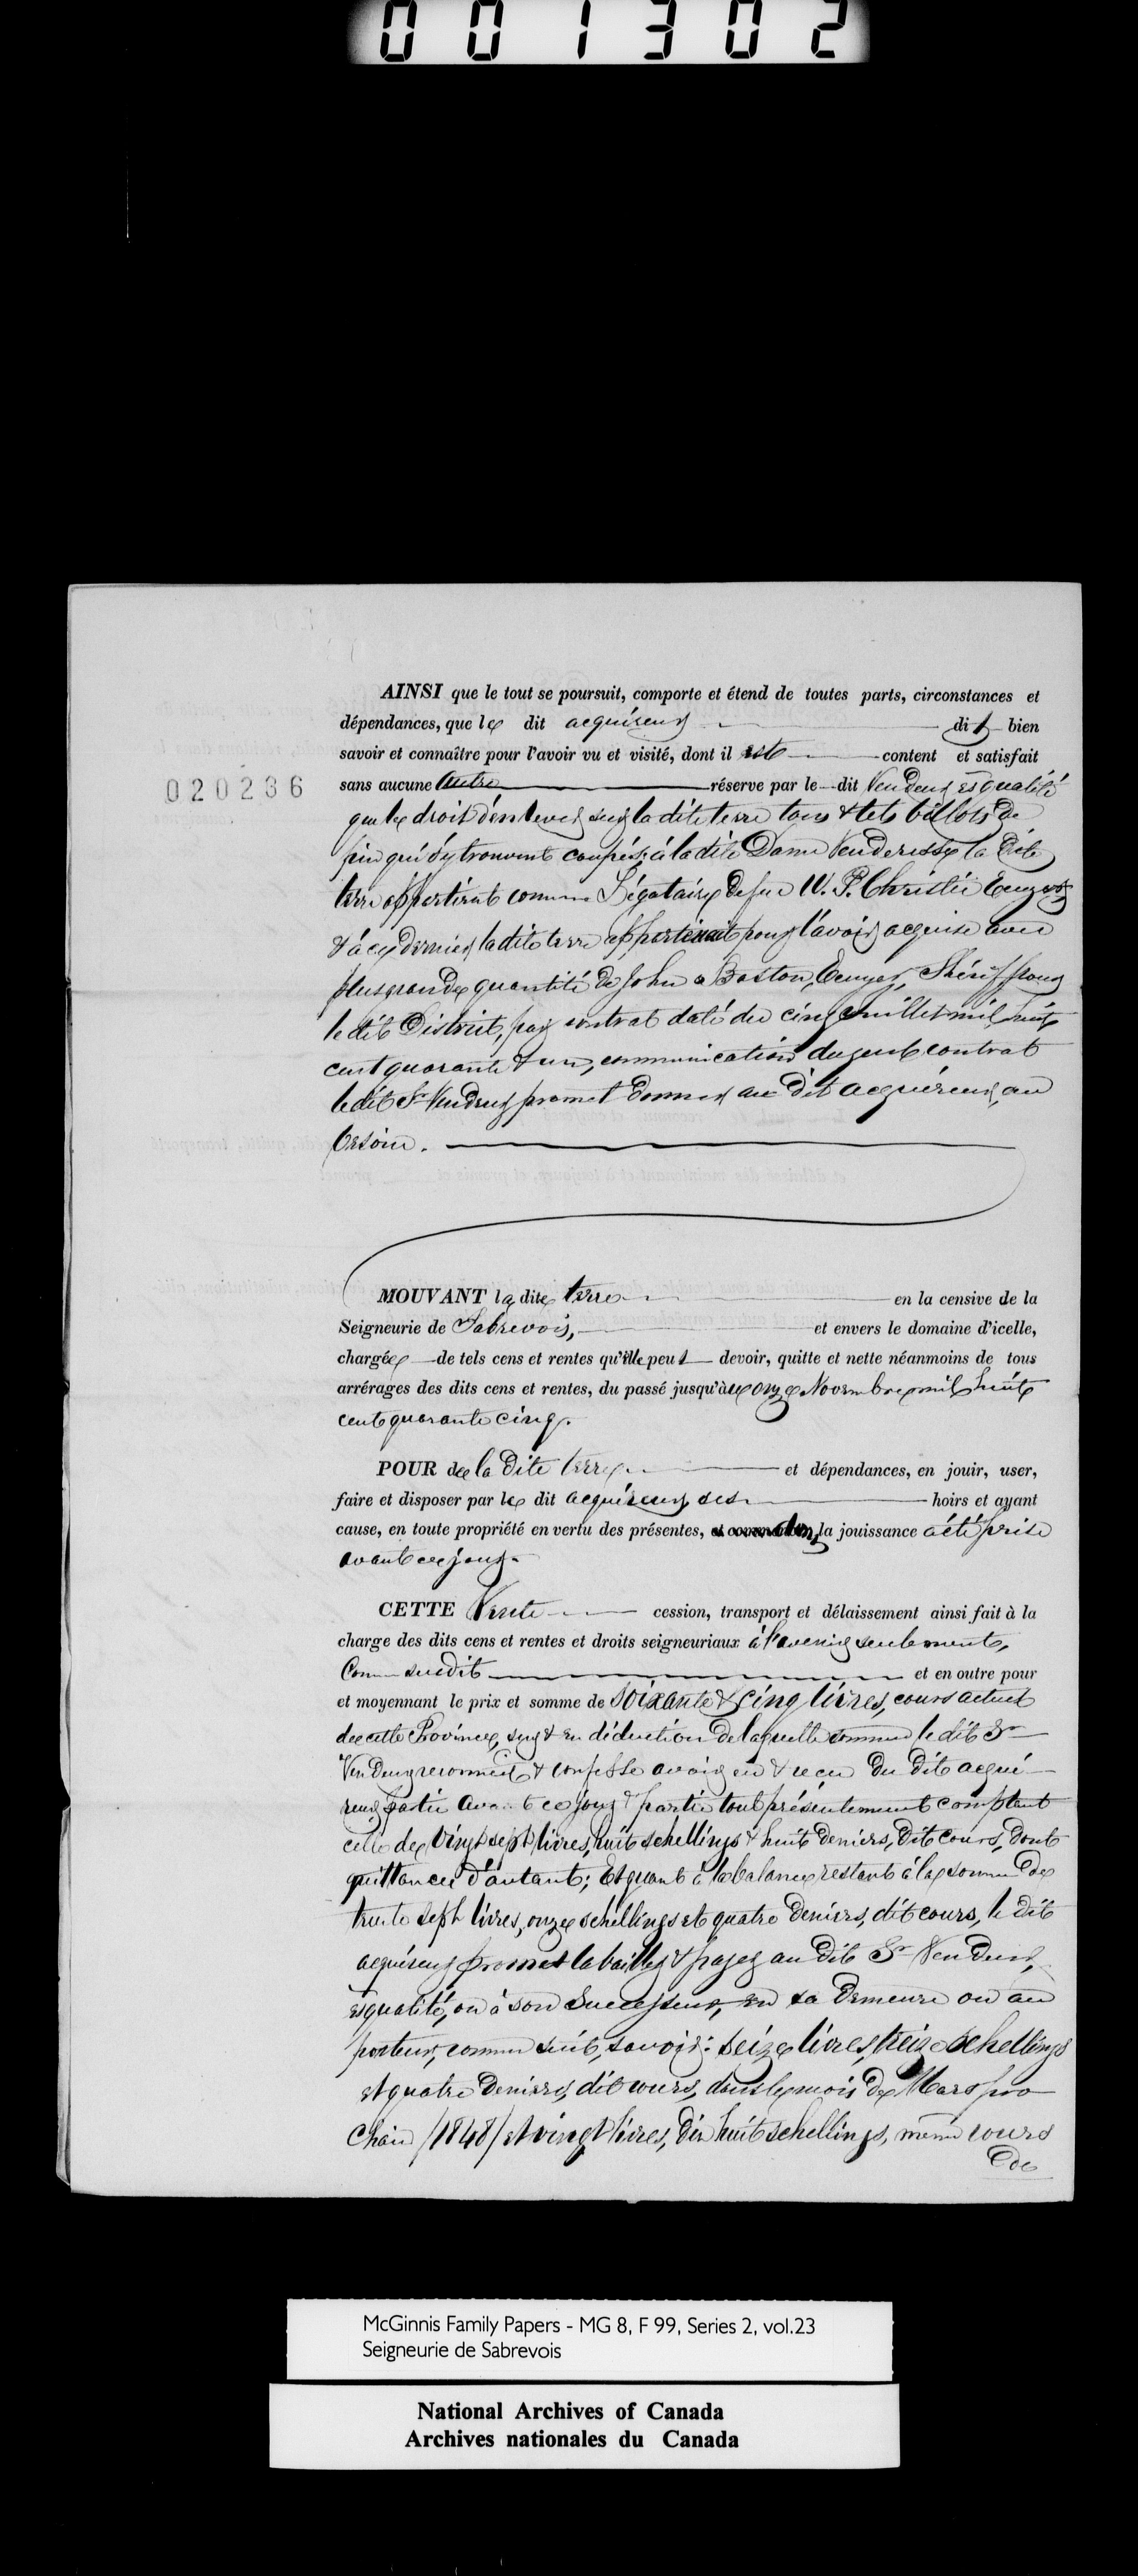 001302
AINSI que le tout se poursuit, comporte et étend de toutes parts, circonstances et
dépendances, que le dit acquéreur dit bien
savoir et connaître pour l'avoir vu et visité, dont il est content et satisfait
020236
sans aucune autre réserve par le dit Vendeur èsqualité
que le droit d'enlever sur la dite terre tous & tels billots de
pin qui s'y trouvent coupés; à la dite Dame Venderesse la dite
terre appartient comme Légataire de feu W. P. Christie Ecuyer
& à ce dernier la dite terre appartenait pour l'avoir acquise avec
plus grande quantité de John Boston, Ecuyer, Shériff pour
le dit District, par contrat daté du cinq Juillet mil huit
cent quarante & un, communication duquel contrat
le dit Sr Vendeur promet donner au dit acquéreur, au
besoin.
MOUVANT la dite terre en la censive de la
Seigneurie de Sabrevois, et envers le domaine d'icelle,
chargée de tels cens et rentes qu'elle peut devoir, quitte et nette néanmoins de tous
arrérages des dits cens et rentes, du passé jusqu'au onze Novembre mil huit
cent quarante cinq.
POUR de la dite terre et dépendances, en jouir, user,
faire et disposer par le dit acquéreur ses hoirs et ayant
cause, en toute propriété en vertu des présentes, la jouissance a été prise
avant ce jour.
CETTE Vente cession, transport et délaissement ainsi fait à la
charge des dits cens et rentes et droits seigneuriaux à l'avenir seulement,
Comme susdit et en outre pour
et moyennant le prix et somme de Soixante & Cinq livres, cours actuel
de cette Province, sur & en déduction de laquelle somme le dit Sr
Vendeur reconnait & confesse avoir eu & reçu du dit acqué-
reur partie avant ce jour & partie tout présentement comptant
celle de Vingt sept livres, huit schellings & huit deniers, dit cours, dont
quittance d'autant; Et quant à la balance restant à la somme de
trente sept livres, onze schellings et quatre deniers, dit cours, le dit
acquéreur promet la bailler & payer au dit Sr Vendeur,
èsqualité, ou à son Successeur, en sa demeure ou au
porteur, comme suit, savoir: seize livres, treize schellings
et quatre deniers, dit cours, dans le mois de Mars pro
chain /1848/ et vingt livres, dix huit schellings, même cours
de
McGinnis Family Papers - MG 8, F 99, Series 2, vol.23
Seigneurie de Sabrevois
National Archives of Canada
Archives nationales du Canada